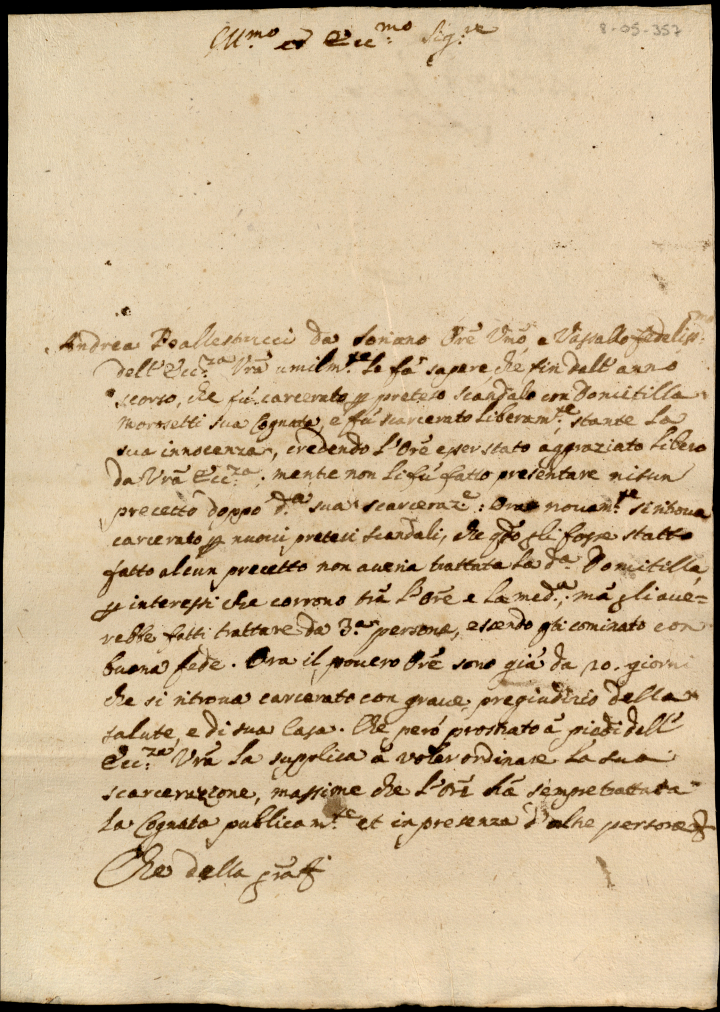 8-05-357
Ill:mo et Ecc:mo Sig:re
Andrea Pallestrucci da Soriano Ore Umo e Vassallo fedeliss:mo
dell'Ecc:za Vra umilm:te le fa sapere che fin dall'anno
scorso, che fù carcerato p preteso scandalo con Domitilla
Morosetti sua Cognata, e fù scarcerato liberam:te stante la
sua innocenza, credendo l'Ore esser stato aggraziato libero
da Vra Ecc:za: mente non li fù fatto presentare nisun
precetto doppo d:a sua scarceraz:e: Ora novam:te si ritrova
carcerato p nuovi pretesi scandali, che qdo gli fosse statto
fatto alcun precetto non averia trattata la d:a Domitilla
p interessi che corrono trà l'Ore e la med:a: mà gli ave=
rebbe fatti trattare da 3:a persona, essendo cominato con
buona fede. Ora il povero Ore sono già da 20. giorni
che si ritrova carcerato con grave pregiudizio della
salute, e di sua Casa. Che però prostrato à piedi dell'
Ecc:za Vra la supplica à voler ordinare la sua
scarcerazione, massime che l'Ore hà sempre trattata
la Cognata publicam:te et in presenza d'altre persone
Che della gra